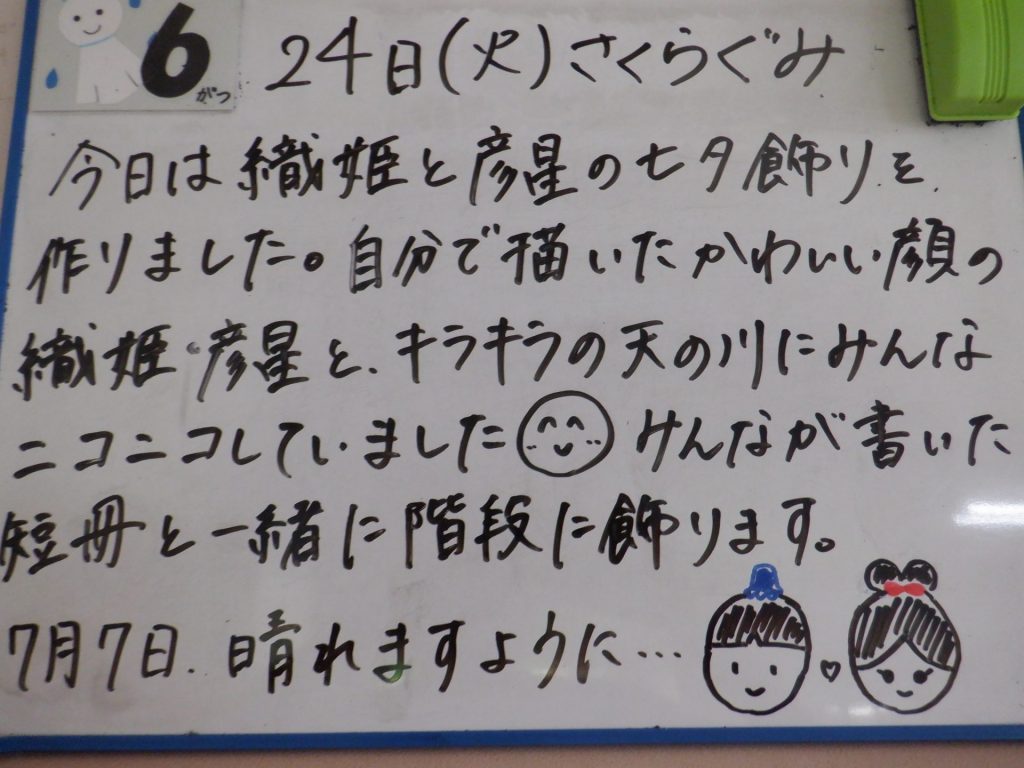 6がつ 24日(火)さくらぐみ
今日は織姫と彦星の七夕飾りを、
作りました。自分で描いたかわいい顔の
織姫・彦星と、キラキラの天の川にみんな
ニコニコしていました みんなが書いた
短冊と一緒に階段に飾ります。
7月7日、晴れますように…